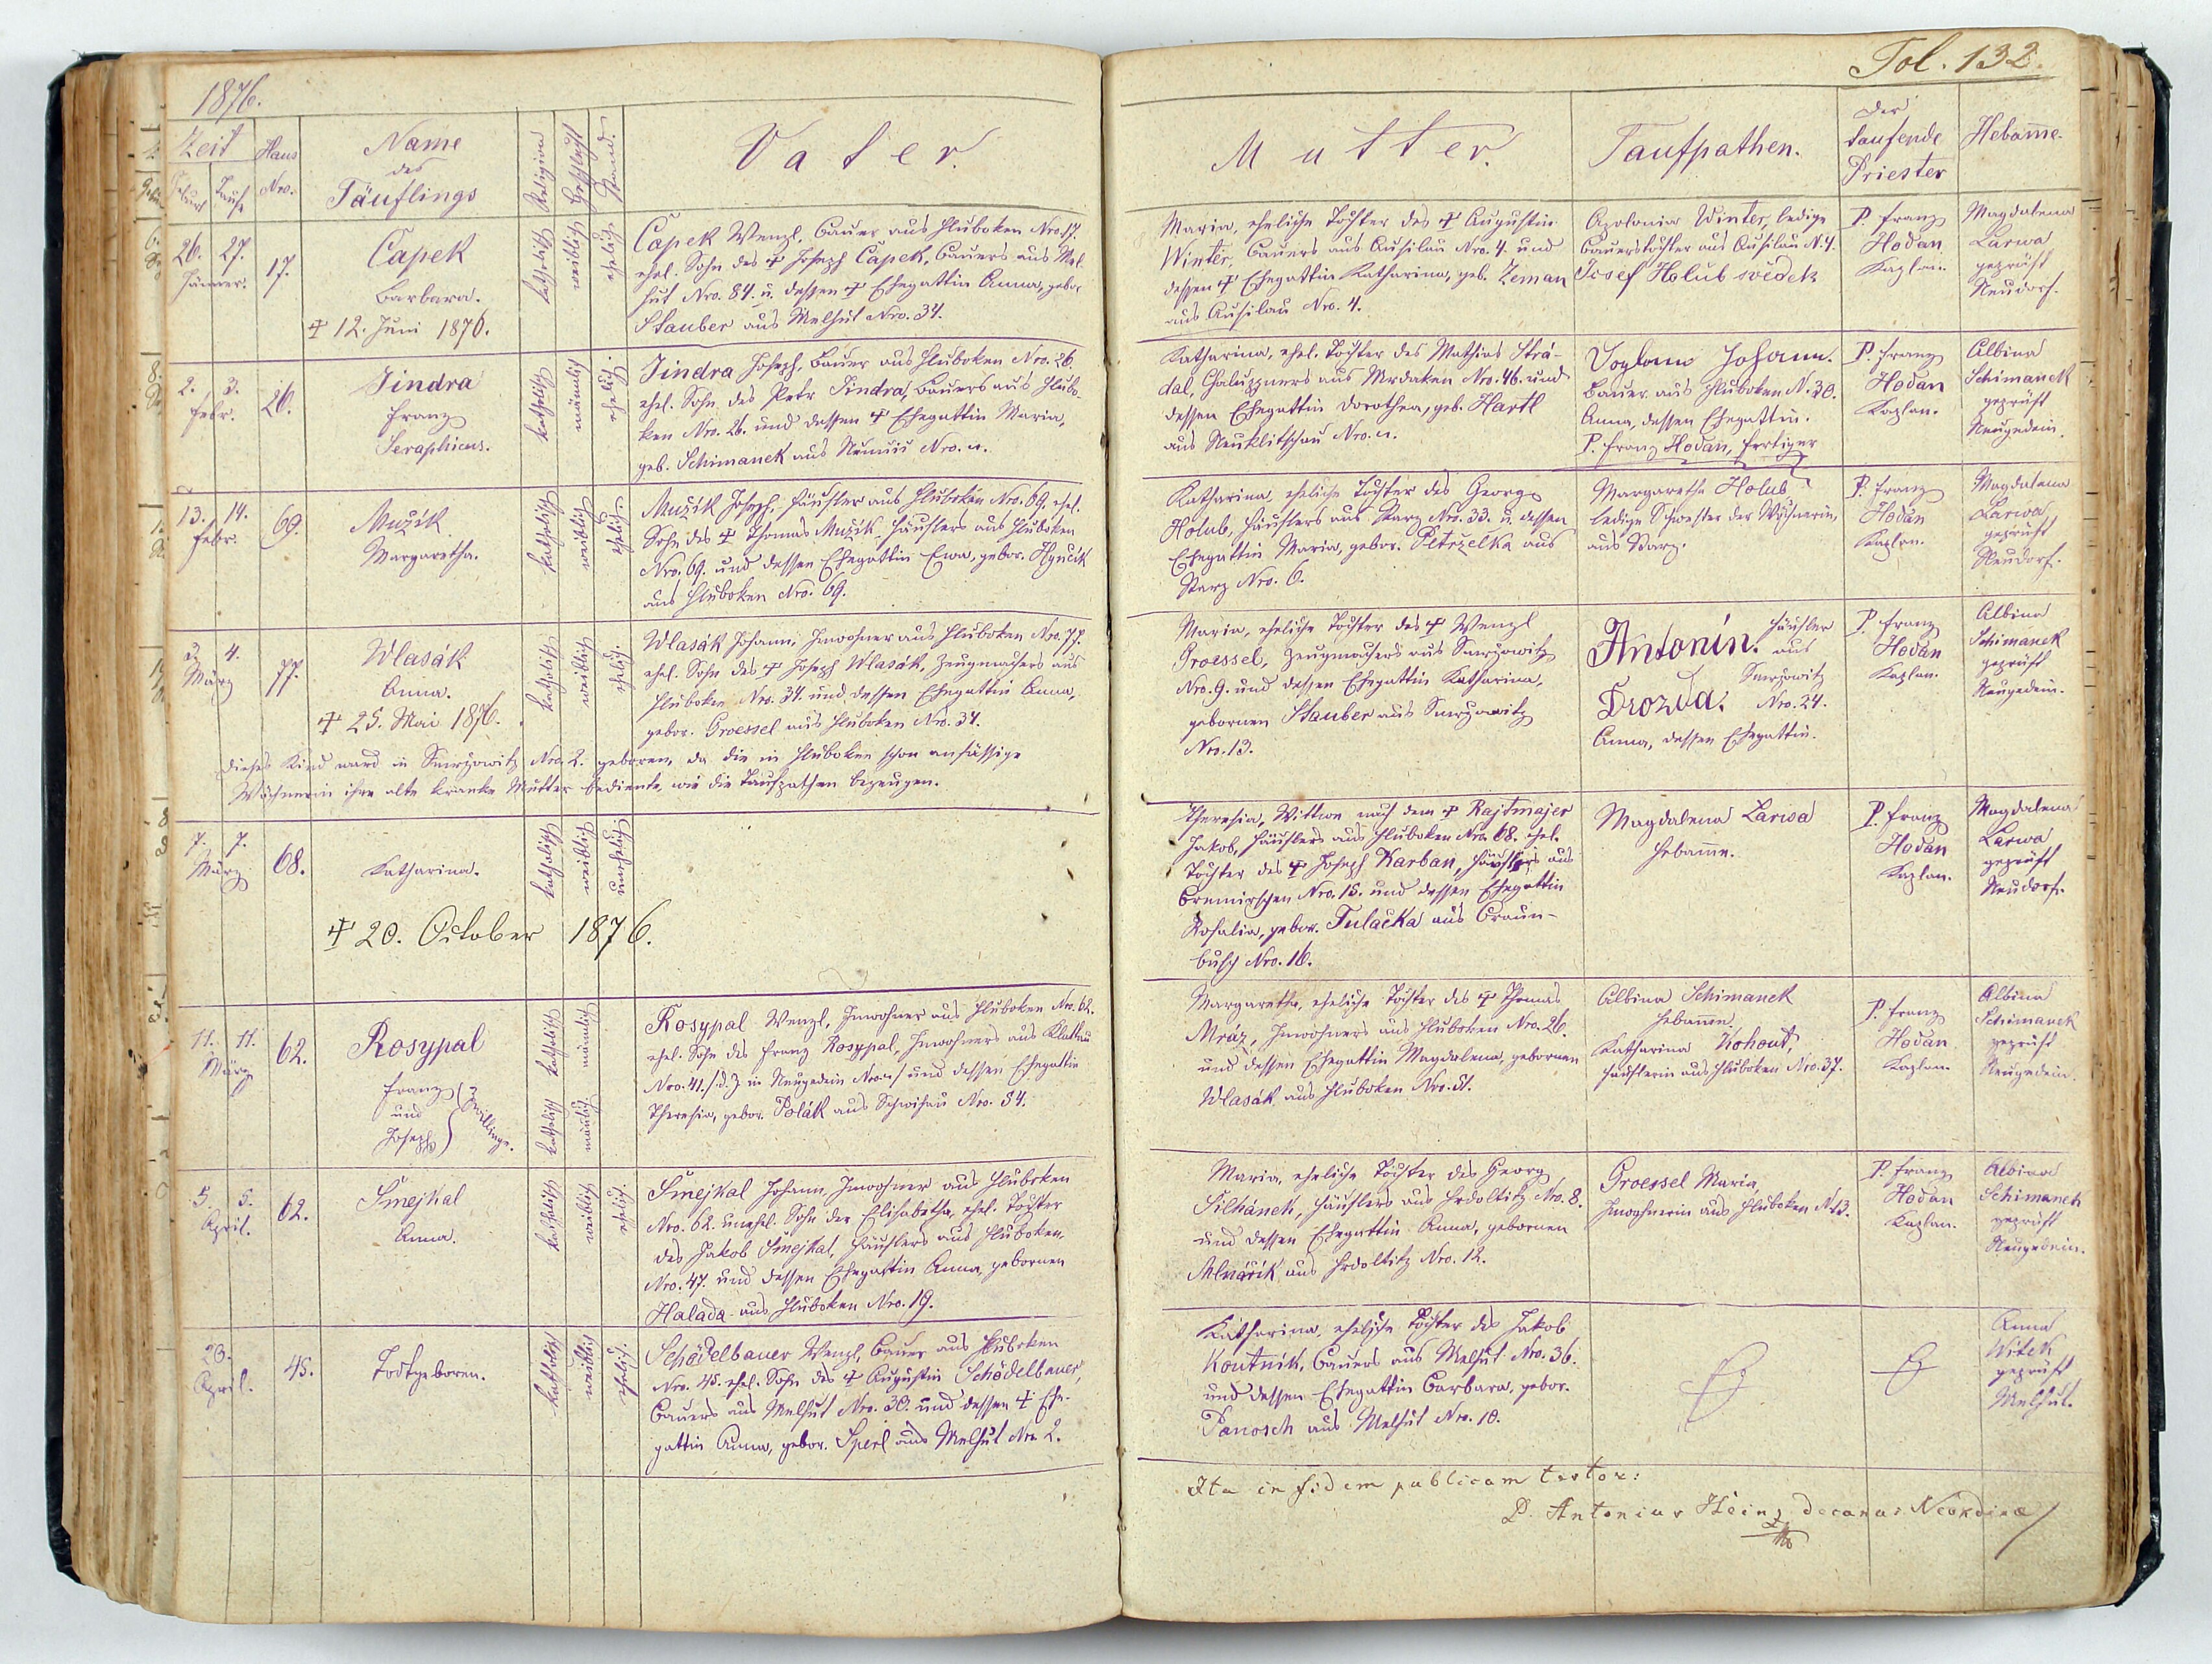 1876.
Fol. 132.
Zeit
Geburt Taufe
Haus Nro.
Name
des
Täuflings
Religion
Geschlecht
Stand.
Vater.
Mutter.
Taufpathen.
Der
taufende
Priester
Hebam̄e.
26. 27.
Jänner.
17.
Čapek
Barbara.
† 12. Juni 1876.
katholisch
weiblich
ehelich.
Čapek Wenzl, Bauer aus Hluboken Nro 17.
ehel. Sohn des † Joseph Čapek, Bauers aus Mel-
hut Nro. 84. u. dessen † Ehegattin Anna, gebor
Stauber aus Melhut Nro. 34.
Maria, eheliche Tochter des † Augustin
Winter, Bauers aus Ausilau Nro. 4. und
dessen † Ehegattin Katharina, geb. Zeman
aus Ausilau Nro. 4.
Apolonia Winter, ledige
Bauerstochter aus Ausilau N. 4.
Josef Holub svědek
P. Franz
Hodan
Kaplan.
Magdalena
Larwa
geprüft
Neudorf.
2. 3.
Febr.
26.
Jindra
Franz
Seraphicus.
katholisch
mänlich
ehelich.
Jindra Joseph, Bauer aus Hluboken Nro. 26.
ehel. Sohn des Petr Jindra, Bauers aus Hlubo-
ken Nro. 26. und dessen † Ehegattin Maria,
geb. Schimanek aus
Katharina, ehel. Tochter des Mathias Strá-
dal, Chaluppners aus Mrdaken Nro. 46. und
dessen Ehegattin Dorothea, geb. Hartl
aus Neuklitschau Nro.
Johann.
Bauer aus Hluboken N. 30.
Anna, dessen Ehegattin.
P. Franz Hodan, Fertiger
P. Franz
Hodan
Kaplan.
Albina
Schimanek
geprüft
Neugedein.
13. 14.
Febr.
69.
Mužík
Margaretha.
katholisch
weiblich
ehelich.
Mužík Joseph, Häusler aus Hluboken Nro. 69. ehel.
Sohn des † Thomas Mužík, Häuslers aus Hluboken
Nro. 69. und dessen Ehegattin Ewa, gebor. Hynčik
aus Hluboken Nro. 69.
Katharina, eheliche Tochter des Georg
Holub, Häuslers aus Starz Nro. 33. u. dessen
Ehegattin Maria, gebor. Petrželka aus
Starz Nro. 6.
Margaretha Holub
ledige Schwester der Wöchnerin,
aus Starz.
P. Franz
Hodan
Kaplan.
Magdalena
Larwa
geprüft
Neudorf.
4.
März
77.
Wlasák
Anna.
† 25. Mai 1876.
katholisch
weiblich
ehelich.
Wlasák Johann, Inwohner aus Hluboken Nro. 77.
ehel. Sohn des † Joseph Wlasák, Zeugmachers aus
Hluboken Nro. 34 und dessen Ehegattin Anna,
gebor. Groessel aus Hluboken Nro. 34.
Dieses Kind ward in Smržowitz Nro. 2. geboren, da die in Hluboken schon ansässige
Wöchnerin ihre alte kranke Mutter bediente, wie die Taufpathen bezeugen.
Maria, eheliche Tochter des † Wenzl
Groessel, Zeugmachers aus Smržowitz
Nro. 9. und dessen Ehegattin Katharina,
gebornen Stauber aus Smržowitz
Nro. 13.
Antonín Häusler
aus
Smržowitz
Drozda. Nro. 24.
Anna, dessen Ehegattin.
P. Franz
Hodan
Kaplan.
Albina
Schimanek
geprüft
Neugedein.
7. 7.
März
68.
Katharina.
† 20. October 1876.
katholisch
weiblich
unehelich.
Theresia, Wittwe nach dem † Rajtmajer
Jakob, Häuslers aus Hluboken Nro. 68. ehel.
Tochter des † Joseph Karban, Häuslers aus
Bremirschen Nro. 15. und dessen Ehegattin
Rosalia, gebor. Tulačka aus Braun-
busch Nro. 16.
Magdalena Larwa
Hebam̄e.
P. Franz
Hodan
Kaplan.
Magdalena
Larwa
geprüft
Neudorf.
11. 11.
März
62.
Rosypal
Franz
und
Joseph
Zwillinge.
katholisch
mänlich
katholisch
mänlich
Rosypal Wenzl, Inwohner aus Hluboken Nro. 62.
ehel. Sohn des Franz Rosypal, Inwohners aus Klattau
Nro. 41. /: d. Z. in Neugedein und dessen Ehegattin
Theresia, gebor. Polák aus Schwihau Nro. 34.
Margaretha, eheliche Tochter des † Thomas
Mráz, Inwohners aus Hluboken Nro. 26.
und dessen Ehegattin Magdalena, gebornen
Wlasák aus Hluboken Nro. 51.
Albina Schimanek
Hebam̄e.
Katharina Kohout,
Häuslerin aus Hluboken Nro. 37.
P. Franz
Hodan
Kaplan.
Albina
Schimanek
geprüft
Neugedein.
5. 5.
April.
62.
Smejkal
Anna.
katholisch
weiblich
ehelich.
Smejkal Johann, Inwohner aus Hluboken
Nro. 62. unehel. Sohn der Elisabetha, ehel. Tochter
des Jakob Smejkal, Häuslers aus Hluboken
Nro. 47. und dessen Ehegattin Anna, gebornen
Halada aus Hluboken Nro. 19.
Maria, eheliche Tochter des Georg
Silhánek, Häuslers aus Hrdoltitz Nro. 8.
und dessen Ehegattin Anna, gebornen
Mlnářik aus Hrdoltitz Nro. 12.
Groessel Maria,
Inwohnerin aus Hluboken N. 13.
P. Franz
Hodan
Kaplan.
Albina
Schimanek
geprüft
Neugedein.
23.
April.
45.
Todtgeboren.
katholisch
weiblich
ehelich.
Schädelbauer Wenzl, Bauer aus Hluboken
Nro. 45. ehel. Sohn des † Augustin Schädelbauer,
Bauers aus Melhut Nro. 30. und dessen † Ehe-
gattin Anna, gebor. Sperl aus Melhut Nro. 2.
Katharina, eheliche Tochter des Jakob
Koutník, Bauers aus Melhut Nro. 36.
und dessen Ehegattin Barbara, gebor.
Panosch aus Melhut Nro. 10.
Anna
Witek
geprüft
Melhut.
Ita in fidem publicam testor:
P. Antonius Heinz decanus Neogdinae